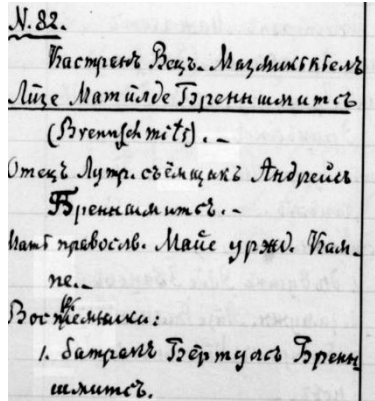 N. 82.
Кастренъ Вецъ. Мазминккелъ
Лизе Матилде Бренншмитсъ
(Brennschmits). –
Отецъ Лутр. съёмщикъ Андрейсъ
Бренншмитсъ. –
Мать правослв. Майе уржд. Кам-
пе. –
Воспріемники:
1. батракъ Бертулсъ Бренн-
шмитсъ.